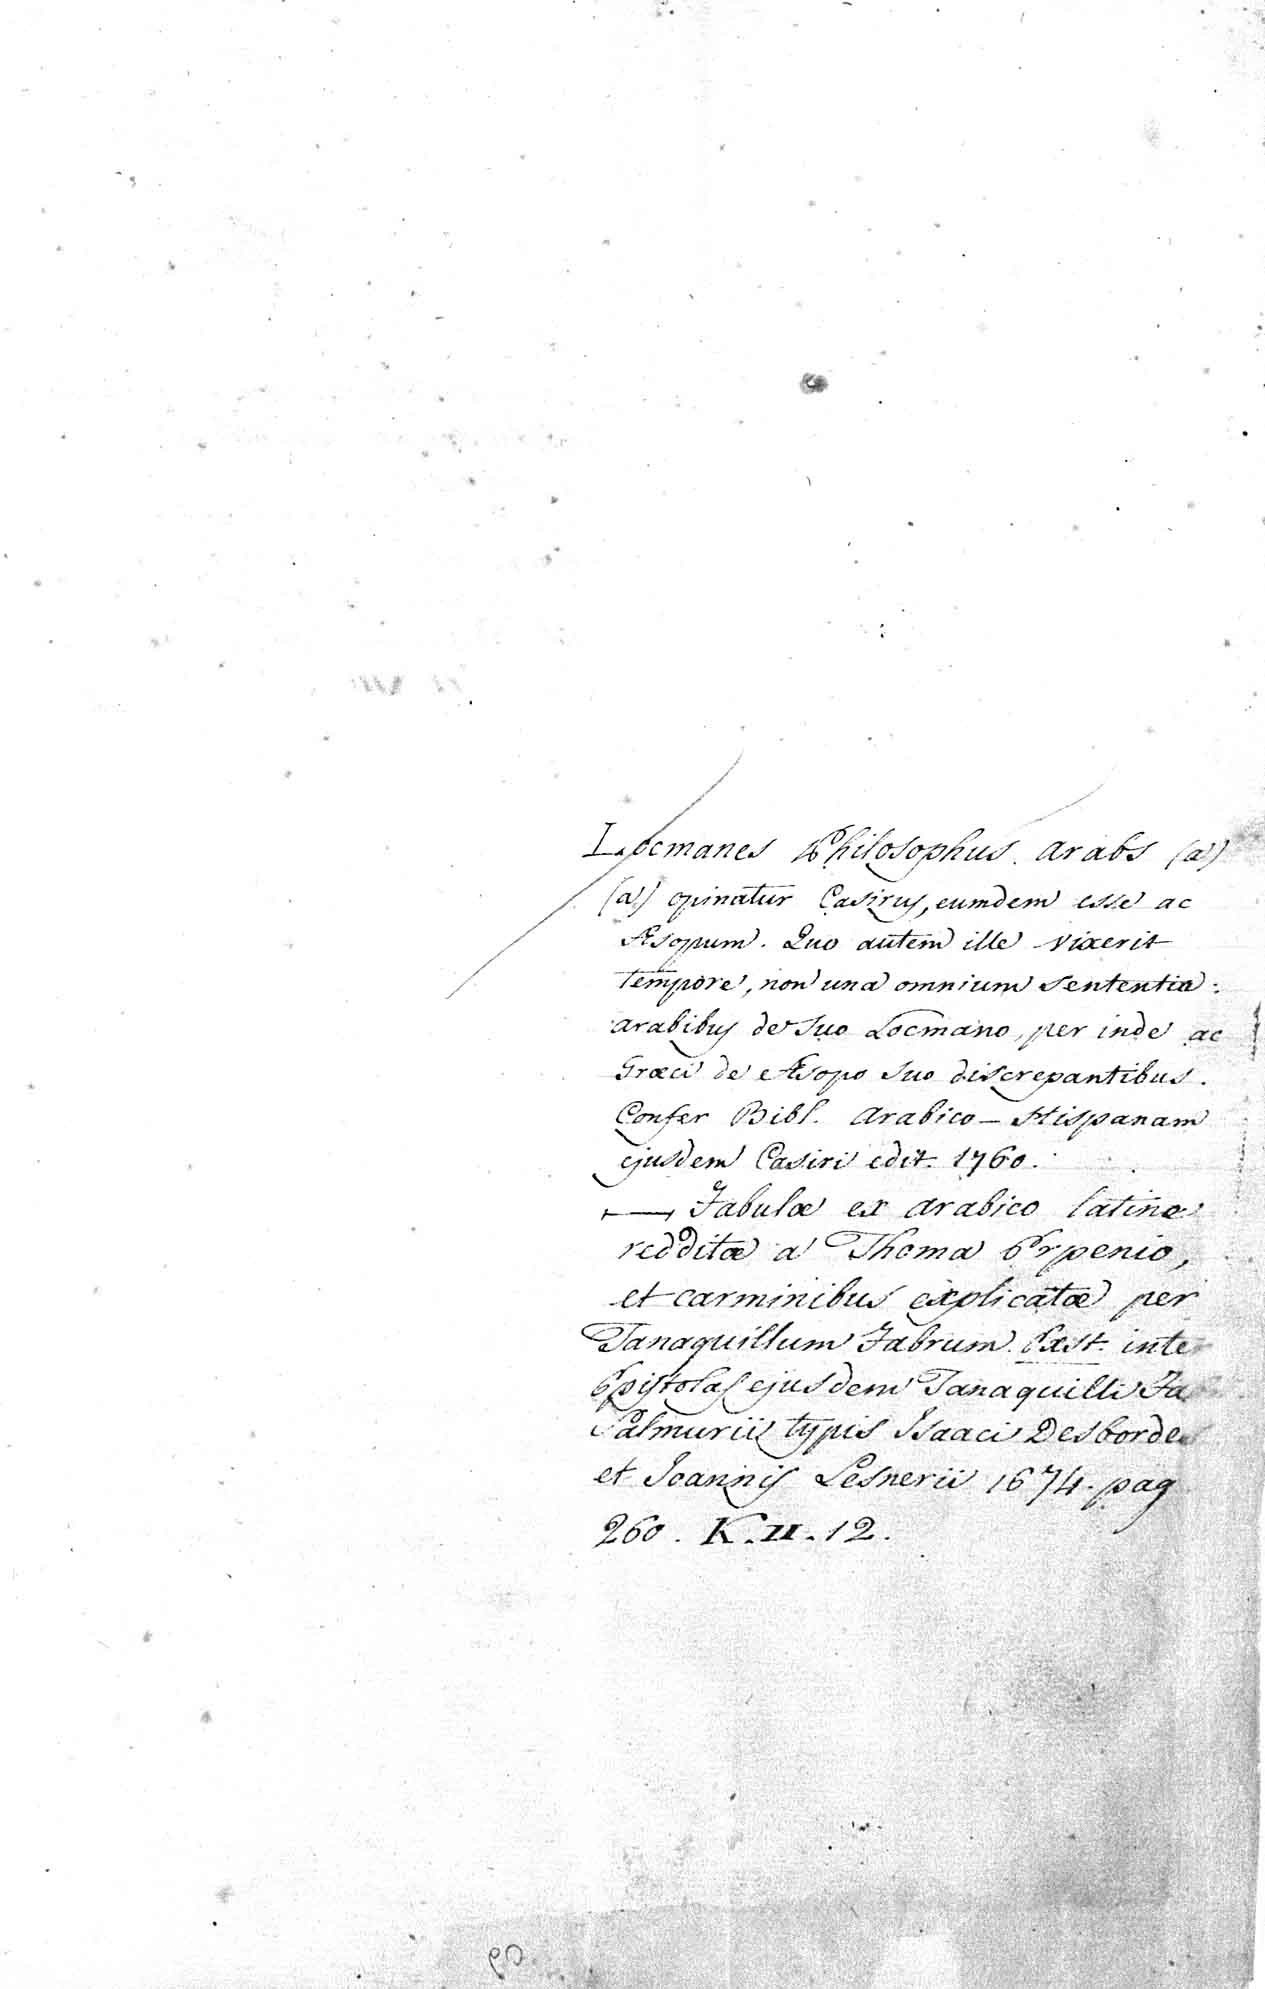 Locmanes Philosophus arabs (a)
(a) opinatur Casirus, eumdem esse ac
Æsopum. Quo autem ille vixerit
tempore, non una omnium sententia:
arabibus de suo Locmano, per inde ac
Græci de Æsopo suo discrepantibus.
Confer Bibl. Arabico-Hispanam
ejusdem Casiri edit. 1760.
— Fabulæ ex arabico latine
redditæ a Thoma Erpenio,
et carminibus explicatæ per
Tanaquillum Fabrum. Exst. inter
Epistolas ejusdem Tanaquilli Fa
Salmurii typis Isaaci Desbordes
et Joannis Lesnerii 1674. pag
260. K.II.12.